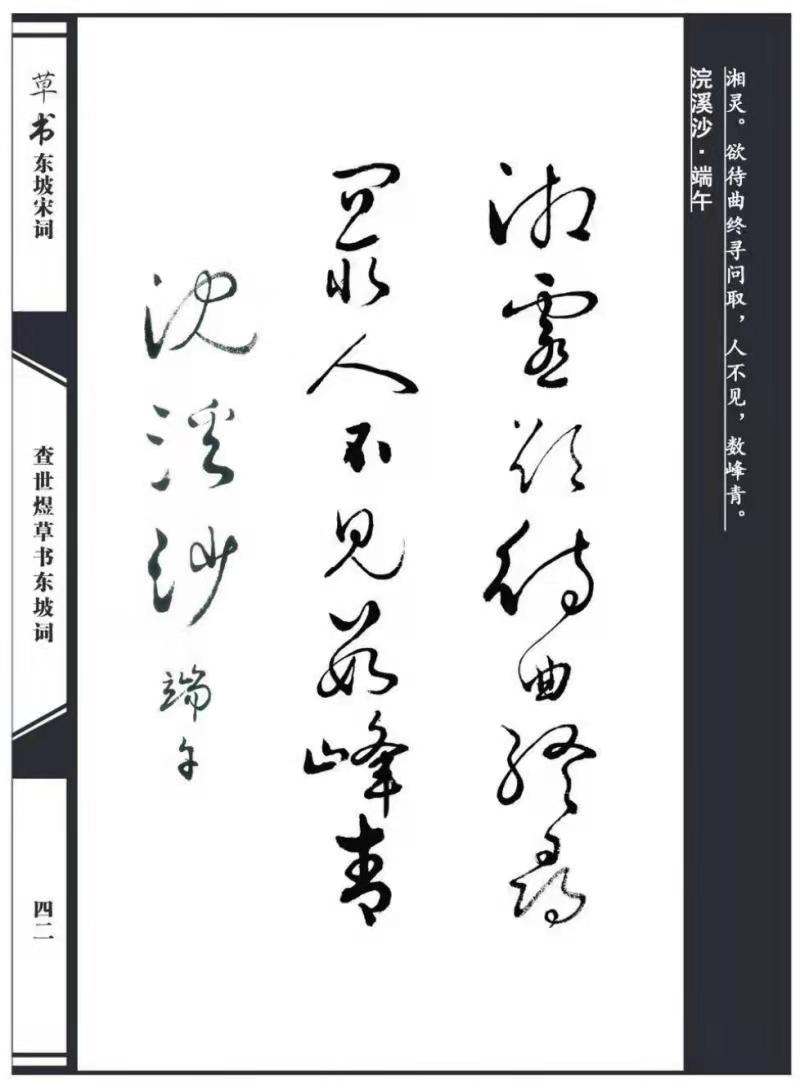 湘灵。欲待曲终寻问取，人不见，数峰青。
浣溪沙·端午
湘靈欲待曲終尋
問取人不見數峰青
浣溪沙 端午
草书东坡宋词
查世煜草书东坡词
四二